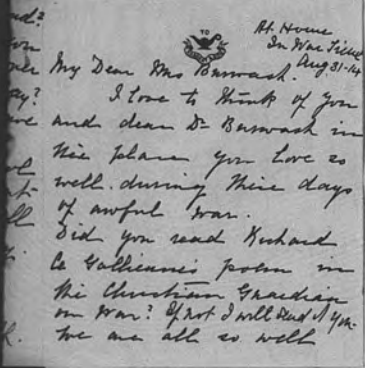 TO
At Home
In War Time
Aug 31-14
My Dear Mrs Burwash.
I Love to think of you
and dear Dr Burwash in
the place you Love so
well. during these days
of awful war.
Did you read Richard
Le Gallienne's poem in
the Christian Guardian
on War? If not I will send it you.
We are all so well